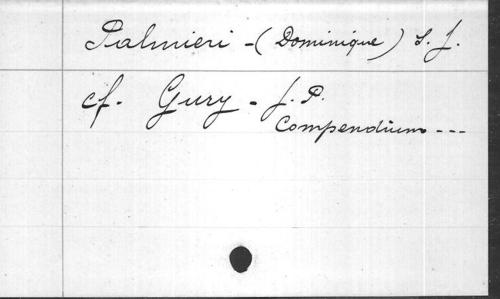 Palmieri - (Dominique) S. J.
cf. Gury - J. P.
Compendium ---